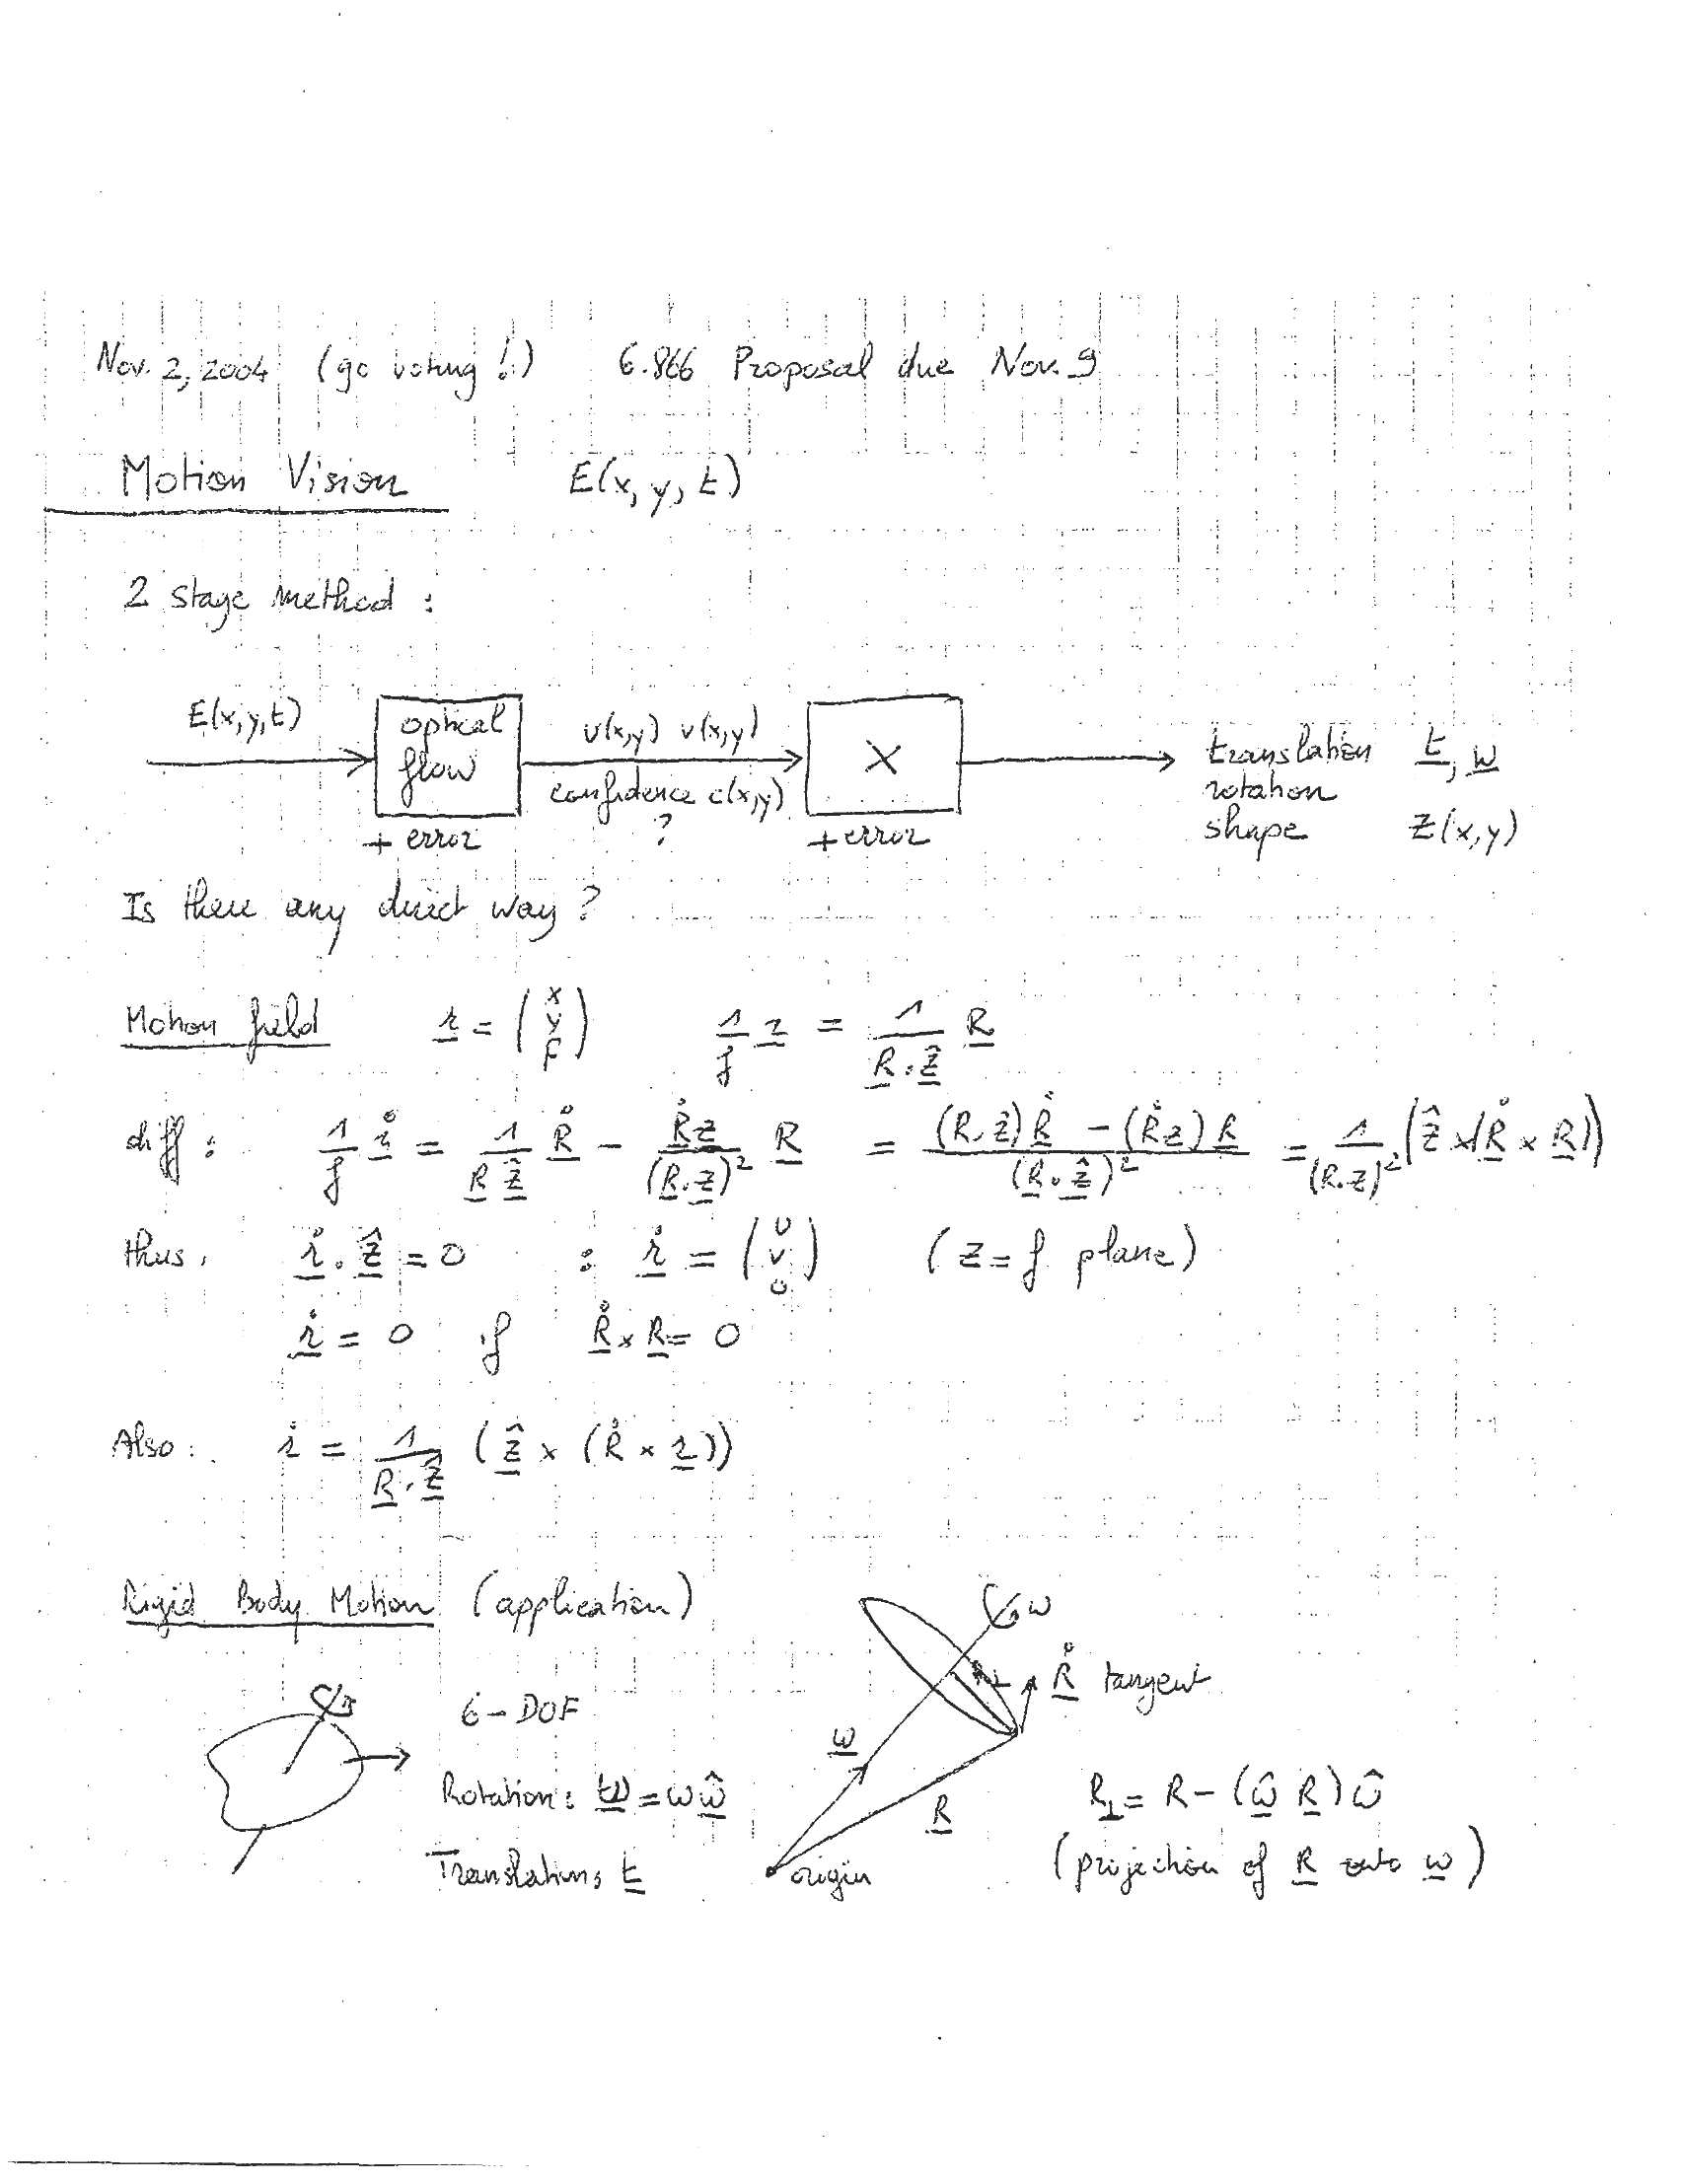 Nov. 2, 2004 (go voting !) 6.866 Proposal due Nov. 9
Motion Vision E(x, y, t)
2 stage method :
E(x,y,t) optical flow + error u(x,y) v(x,y) confidence c(x,y) ? X + error translation t, ω rotation shape Z(x,y)
Is there any direct way ?
Motion field r = (x y f) 1/f r = 1/(R·ẑ) R
diff : 1/f ṙ = 1/(R ẑ) Ṙ - Ṙz/(R·z)² R = ((R.ẑ)Ṙ - (Ṙz)R)/(R·ẑ)² = 1/(R·z)² (ẑ×(Ṙ × R))
thus, ṙ·ẑ = 0 : ṙ = (u v 0) (z = f plane)
ṙ = 0 if Ṙ × R = 0
Also: ṙ = 1/(R·ẑ) (ẑ × (Ṙ × r))
Rigid Body Motion (application)
ω
Ṙ tangent
6-DOF
ω
Rotation: ω = ω ω̂
R
R⊥ = R - (ω̂ R) ω̂
Translation: t
origin
(projection of R onto ω)